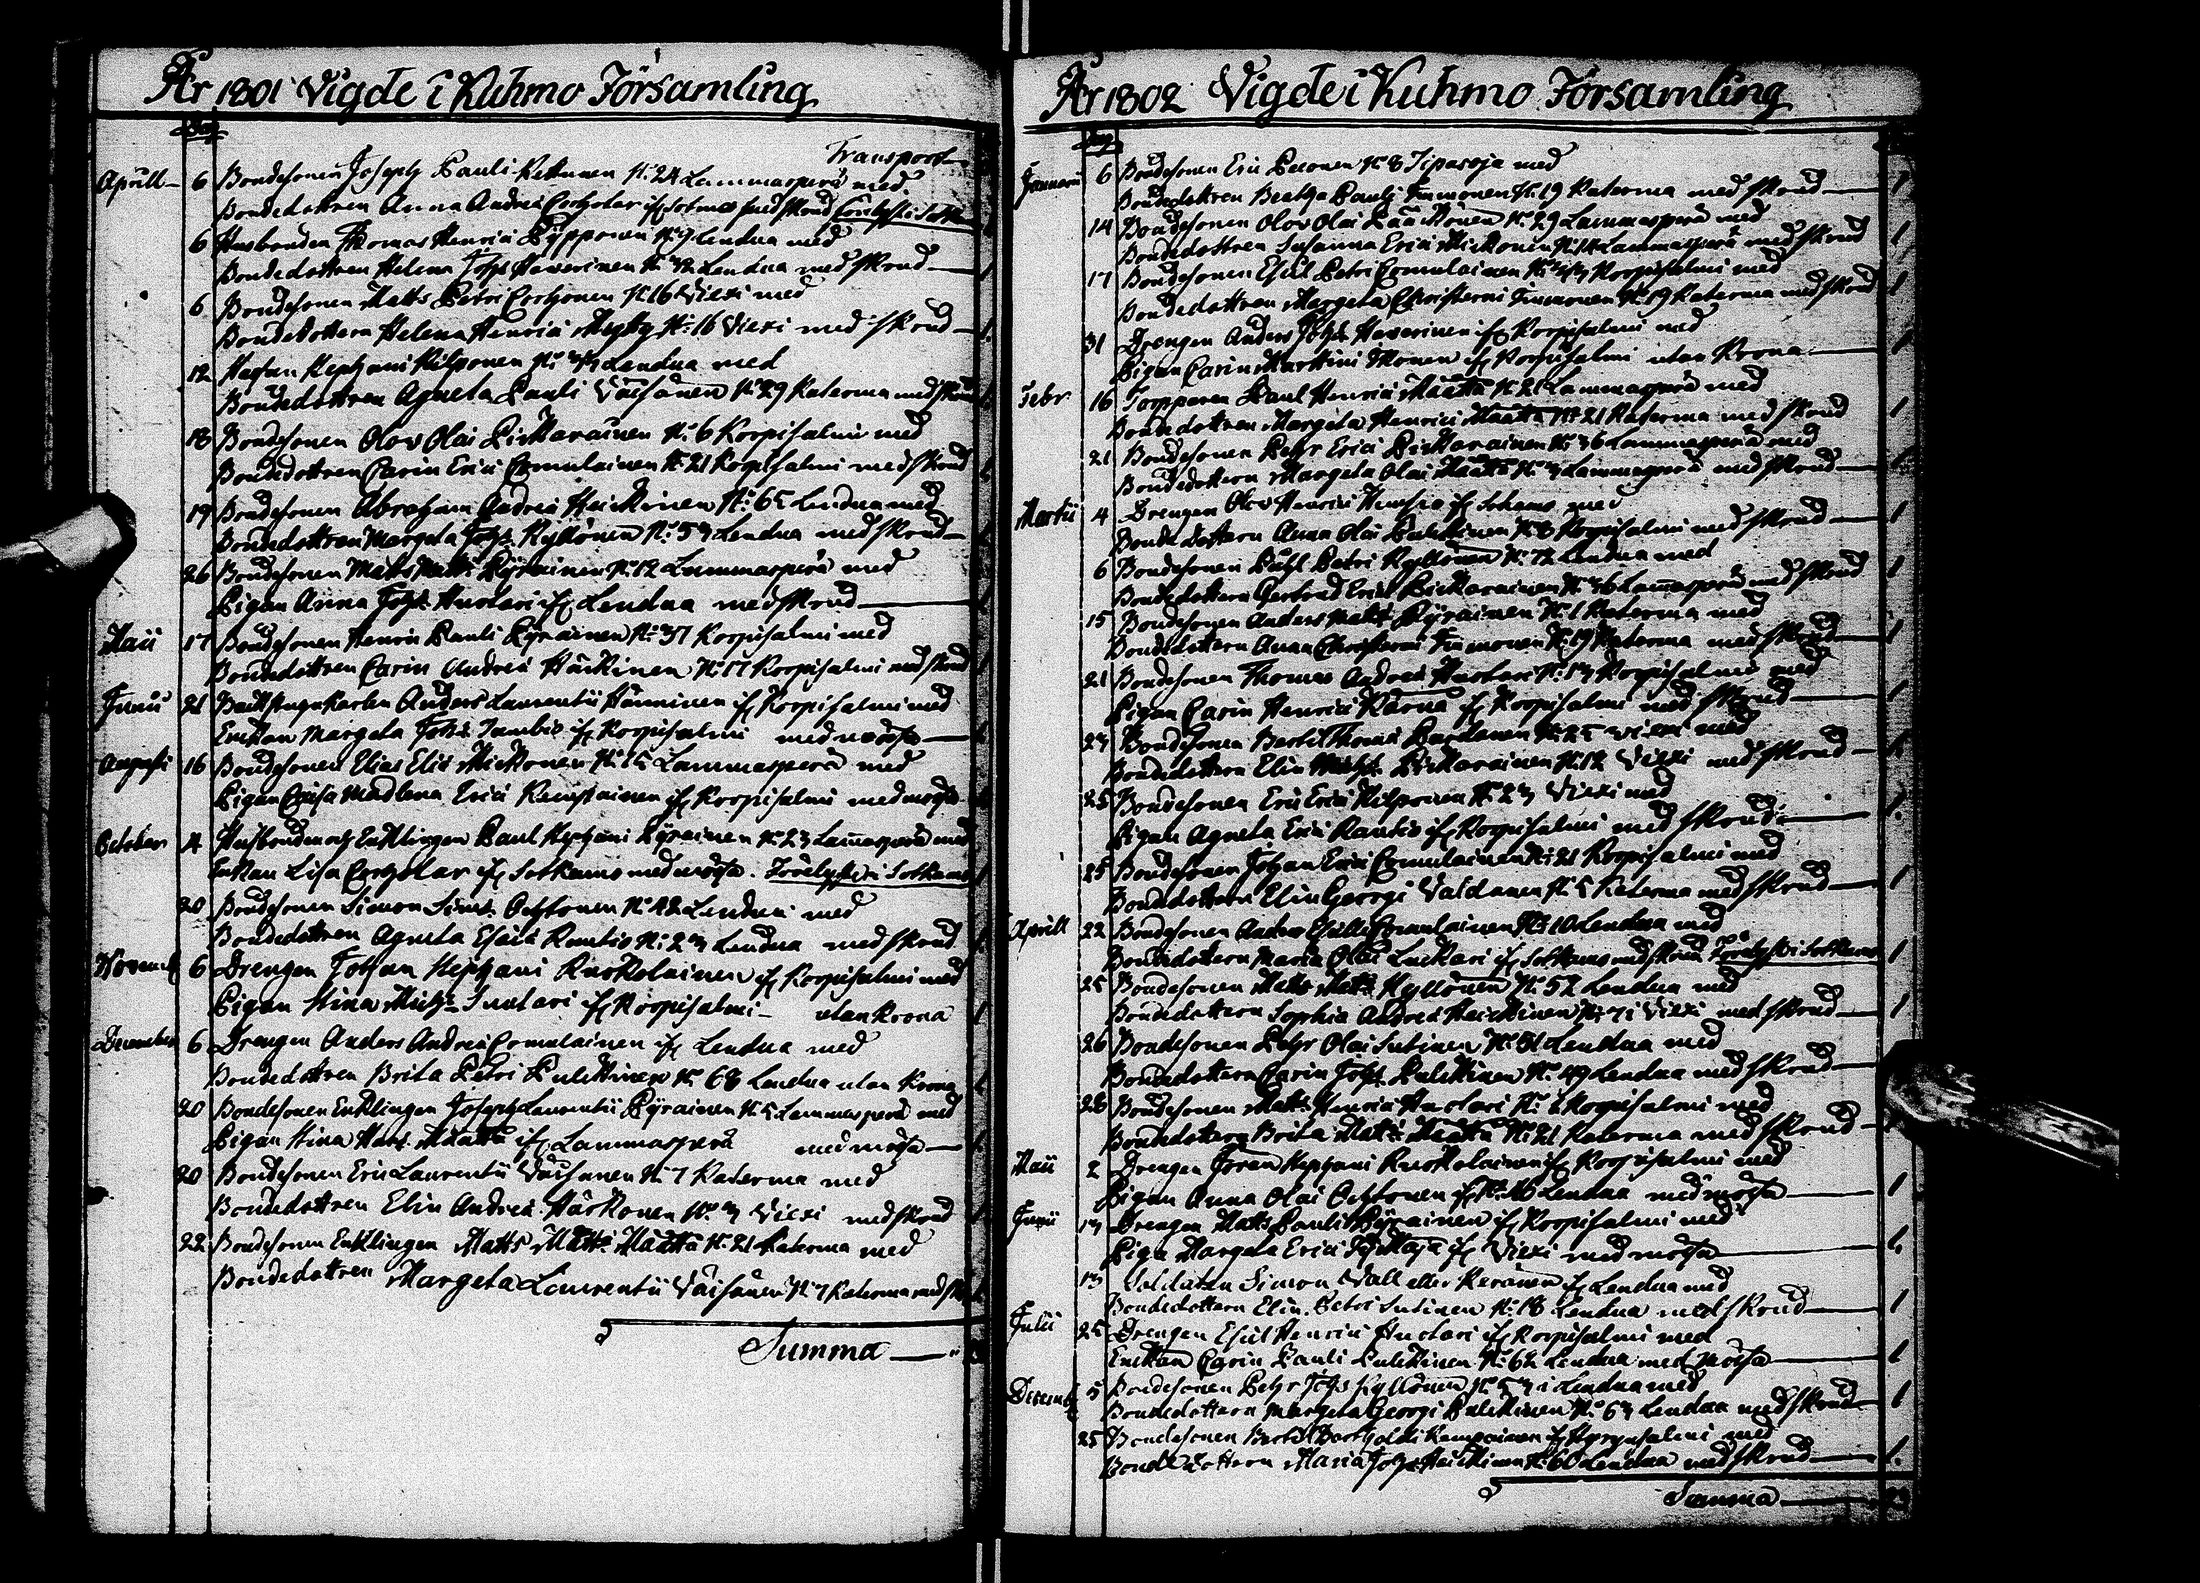 År 1801 Vigde i Kuhmo Församling
Dag
Transport
Aprill 6 Bondesonen Joseph Pauli Kettunen N:24 Lammasperä med
Bondedottren Anna Andrei Corholar if Sotkamo med skrud
6 Husbonden Thomas Henrici Pypponen N:9 Lendua med
Bondedottren Helena Joh: Haverinen Lendua med skrud 1
6 Bondesonen Matts Petri Corhonen N:16 Viexi med
Bondedottern Helena Henrici N:16 Viexi med skrud 1
12 Stephani Kilponen Lendua med
Bondedottren Agneta Pauli Väisänen N:29 Katerma med skrud 1
18 Bondesonen Olov Olai Pickarainen N:6 Korpisalmi med
Bondedottren Carin Erici Comulainen N:21 Korpisalmi med skrud 1
19 Bondesonen Abraham Andrei Heickinen N:65 Lendua med
Bondedottren Margeta Joh: Kyllönen N:53 Lendua med skrud 1
26 Bondesonen Matts Matts: Pyrainen N:12 Lammasperä med
Pigan Anna Joh: Huotari if Lendua med skrud 1
Maii 17 Bondesonen Henric Pauli Pyrainen N:37 Korpisalmi med
Bondedottren Carin Andrei Härkinen N:17 Korpisalmi med skrud 1
Junii 21 Backstugukarlen Anders Laurentii Hänninen if Korpisalmi med
Enkan Margeta Joh: if Korpisalmi med mössa 1
Augusti 16 Bondesonen Elias Eliæ Mickonen Lammasperä med
Pigan Caisa Madlena Erici Kempainen if Korpisalmi med mössa 1
October 4 Husbonden och Enklingen Paul Stephani Pyrainen N:23 Lammasperä med
Enkan Lisa Corholar if Sotkamo med mössa. i Sotkamo 1
20 Bondesonen Simon Sim: Ochtonen N:42 Lendua med
Bondedottren Agneta Esaiæ Rautio N:23 Lendua med skrud 1
Novemb 6 Drengen Johan Stephani Ruokolainen if Korpisalmi med
Pigan Stina Mich: if Korpisalmi utan krona 1
December 6 Drengen Anders Andrei Comulainen if Lendua med
Bondedottren Brita Petri Pulckinen N:68 Lendua utan krona 1
20 Bondesonen Enklingen Joseph Laurentii Pyrainen N:5 Lammasperä med
Pigan Stina Matts: Määttä if Lammasperä med mössa 1
20 Bondesonen Eric Laurentii Väisänen N:7 Katerma med
Bondedottren Elin Andrei Härkönen N:3 Viexi med skrud 1
22 Bondesonen Enklingen Matts Matts: Määttä N:21 Katerma med
Bondedottren Margeta Laurentii Väisänen N:7 Katerma med 1
Summa
År 1802 Vigde i Kuhmo Församling
Dag
Januarii 6 Bondesonen Eric N:8 Tipasoja med
Bondedottren Beatha Pauli Timonen N:19 Katerma med skrud 1
14 Bondesonen Olov Olai Pääckönen N:29 Lammasperä med
Bondedottren Susanna Erici Mickonen Lammasperä med skrud 1
17 Bondesonen Esaias Petri Comulainen Korpisalmi med
Bondedottren Margeta Christerni Timonen N:19 Katerma med skrud 1
31 Drengen Anders Joh: Haverinen if Korpisalmi med
Pigan Carin Martini if Korpisalmi utan Krona 1
Febr 16 Torpparen Paul Henrici Määttä N:21 Lammasperä med
Bondedottren Margeta Henrici Määttä N:21 Katerma med skrud 1
21 Bondesonen Pehr Erici Pickarainen N:36 Lammasperä med
Bondedottern Margeta Olai Määttä N:3 Lammasperä med skrud 1
Martii 4 Drengen Olov Henrici if Sotkamo med
Bondedottern Anna Olai Pulckinen N:8 Korpisalmi med skrud 1
6 Bondesonen Påhl Petri Kyllönen N:72 Lendua med
Bondedottern Gertrud Erici Pickarainen N:36 Lammasperä med skrud 1
15 Bondesonen Anders Matts: Pyrainen N:1 Katerma med
Bondedottern Anna Christerni Timonen N:19 Katerma med skrud 1
21 Bondesonen Thomas Andreæ Huotari N:13 Korpisalmi med
Pigan Carin Henrici Kärnä if Korpisalmi med skrud 1
23 Bondesonen Bertil Thomæ N:25 Viexi med
Bondedottern Elin Pickarainen N:12 Viexi med skrud 1
25 Bondesonen Eric Erici Kilponen N:23 Viexi med
Pigan Agneta Erici Rautio if Korpisalmi med skrud 1
25 Bondesonen Johan Erici Comulainen N:21 Korpisalmi med
Bondedottern Elin Georgi N:5 Katerma med skrud 1
Aprill 22 Bondesonen Comulainen N:10 Lendua med
Bondedottern Maria Olai Luckari if Sotkamo med skrud i Sotkamo 1
25 Bondesonen Matts Matts: Kyllönen N:52 Lendua med
Bondedottern Sophia Andreæ Heickinen N:71 Viexi med skrud 1
26 Bondesonen Pehr Olai Sutinen N:51 Lendua med
Bondedottern Carin Joh: Pulckinen N:49 Lendua med skrud 1
28 Bondesonen Matts Henrici Huotari Korpisalmi med
Bondedottern Brita Matts: Määttä N:21 Katerma med skrud 1
Maii 2 Drengen Jöran Stephani Ruokolainen if Korpisalmi med
Pigan Anna Olai Ochtonen Lendua med mössa 1
Junii 13 Drengen Matts Pauli Pyrainen if Korpisalmi med
Piga Margeta Erici if Viexi med mössa 1
13 Soldaten Simon Vall eller Keränen if Lendua med
Bondedottern Elin Petri Sutinen N:18 Lendua med skrud 1
Julii 25 Drengen Esaias Henrici Huotari if Korpisalmi med
Enckan Carin Pauli Pulckinen N:62 Lendua med mössa 1
Decemb 5 Bondesonen Pehr Joh: Kyllönen N:53 i Lendua med
Bondedottern Margeta Georgi Pulckinen N:63 Lendua med skrud 1
25 Bondesonen Bertil Bartholdi Kempainen if Hyrynsalmi med
Bondedottern Maria Joh: Heickinen N:60 Lendua med skrud 1
Summa